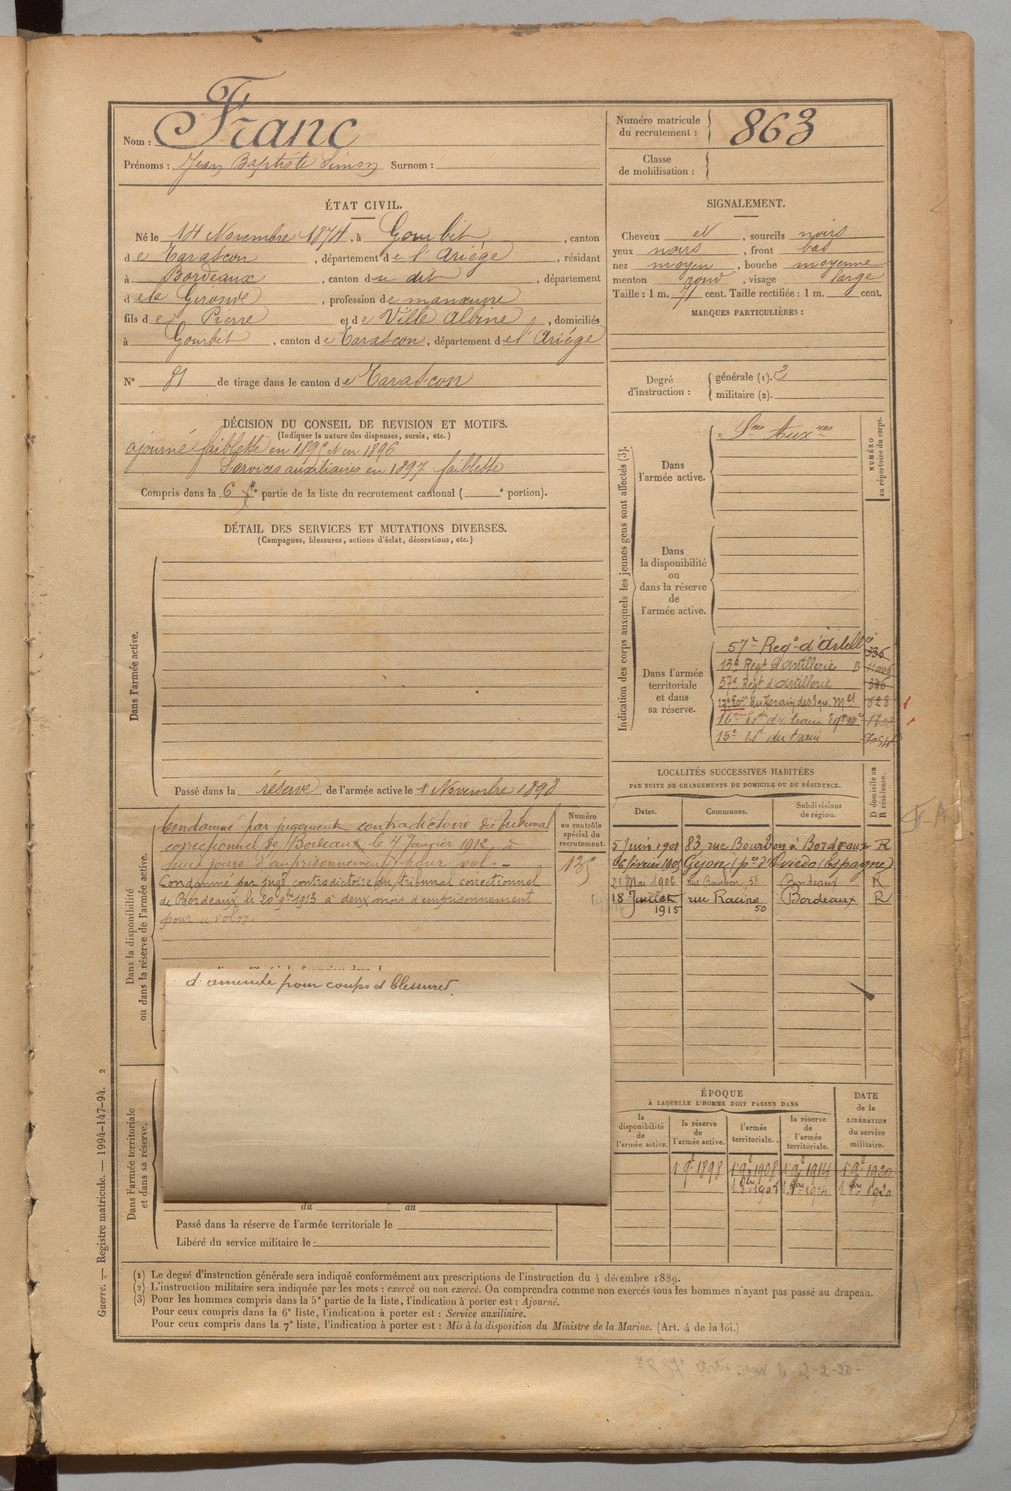 Nom : Franc
Prénoms : Jean Baptiste Simon Surnom :
Numéro matricule du recrutement : 863
Classe de mobilisation :
ÉTAT CIVIL.
Né le 14 Novembre 1874, à Gourbit, canton
de Tarascon, département de l'Ariége, résidant
à Bordeaux, canton du dit, département
de la Gironde, profession de manœuvre
fils de Pierre et de Ville Albine, domiciliés
à Gourbit, canton de Tarascon, département de l'Ariége
N° 81 de tirage dans le canton de Tarascon
SIGNALEMENT.
Cheveux et, sourcils noirs
yeux noirs, front bas
nez moyen, bouche moyenne
menton rond, visage large
Taille : 1 m. 71 cent. Taille rectifiée : 1 m. cent.
MARQUES PARTICULIÈRES :
Degré d'instruction : générale (1). 2
militaire (2).
DÉCISION DU CONSEIL DE REVISION ET MOTIFS.
(Indiquer la nature des dispenses, sursis, etc.)
ajourné faiblesse en 1895 et en 1896
Services auxiliaires en 1897 faiblesse
Compris dans la 6e partie de la liste du recrutement cantonal ( e portion).
DÉTAIL DES SERVICES ET MUTATIONS DIVERSES.
(Campagnes, blessures, actions d'éclat, décorations, etc.)
Dans l'armée active.
Passé dans la réserve de l'armée active le 1 Novembre 1898
Indication des corps auxquels les jeunes gens sont affectés (3).
NUMÉRO au répertoire du corps.
Dans l'armée active.
Sces Auxres
Dans la disponibilité ou dans la réserve de l'armée active.
Dans l'armée territoriale et dans sa réserve.
57e Regt d'Artillie 336
13e Regt d'Artillerie
57e Regt d'Artillerie 336
du Train des Equ. Mres 828
16e Esd du train Eqp mre
15e Esd du train
Dans la disponibilité ou dans la réserve de l'armée active.
Condamné par jugement contradictoire du tribunal
correctionnel de Bordeaux le 7 Janvier 1912, à
huit jours d'emprisonnement pour vol. –
Condamné par jugt contradictoire du tribunal correctionnel
de Bordeaux le 20 9bre 1913 à deux mois d'emprisonnement
pour
d'amende pour coups et blessures.
Numéro au contrôle spécial du recrutement.
LOCALITÉS SUCCESSIVES HABITÉES
PAR SUITE DE CHANGEMENTS DE DOMICILE OU DE RÉSIDENCE.
Dates. Communes. Subdivisions de région. D domicile ou R résidence.
5 Juin 1901 83, rue Bourbon à Bordeaux R
6 février 1905 Gijon (pce d'Oviedo (Espagne)
21 Mai 1906 rue Bourbon, 58 Bordeaux R
18 Juillet 1915 rue Racine 50 Bordeaux R
Dans l'armée territoriale et dans sa réserve.
du au
Passé dans la réserve de l'armée territoriale le
Libéré du service militaire le :
ÉPOQUE
À LAQUELLE L'HOMME DOIT PASSER DANS
la disponibilité de l'armée active.
la réserve de l'armée active.
l'armée territoriale.
la réserve de l'armée territoriale.
DATE de la LIBÉRATION du service militaire.
1 9bre 1898 1 9bre 1908 1 9bre 1914 1 9bre 1920
(1) Le degré d'instruction générale sera indiqué conformément aux prescriptions de l'instruction du 4 décembre 1889.
(2) L'instruction militaire sera indiquée par les mots : exercé ou non exercé. On comprendra comme non exercés tous les hommes n'ayant pas passé au drapeau.
(3) Pour les hommes compris dans la 5e partie de la liste, l'indication à porter est : Ajourné.
Pour ceux compris dans la 6e liste, l'indication à porter est : Service auxiliaire.
Pour ceux compris dans la 7e liste, l'indication à porter est : Mis à la disposition du Ministre de la Marine. (Art. 4 de la loi.)
Guerre. — Registre matricule. — 1994-147-94. 2